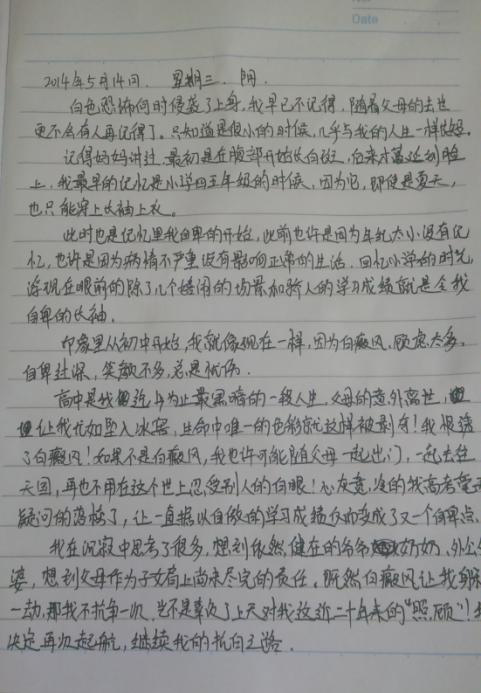 Date
2014年5月14日. 星期三. 阴.
白色恐怖何时侵袭了上身,我早已不记得,随着父母的去世
更不会有人再记得了。只知道是很小的时候,几乎与我的人生一样
记得妈妈讲过,最初是在腹部开始长白斑,后来才蔓延到脸
上,我最早的记忆是小学四五年级的时候,因为它,即使是夏天,
也只能穿上长袖上衣。
此时也是记忆里我自卑的开始,此前也许是因为年纪太小没有记
忆,也许是因为病情不严重没有影响正常的生活。回忆小学的时光
浮现在眼前的除了几个嬉闹的场景和骄人的学习成绩就是令我
自卑的长袖.
印象里从初中开始,我就像现在一样,因为白癜风,顾虑太多,
自卑过深,笑颜不多,总是忧伤。
高中是我迄今为止最黑暗的一段人生,父母的意外离世,
让我尤如坠入冰窖,生命中唯一的色彩就这样被剥夺!我恨透
了白癜风!如果不是白癜风,我也许可能随父母一起出门,一起去往
天国,再也不用在这个世上忍受别人的白眼!心灰意冷的我高考毫无
疑问的落榜了,让一直据以自傲的学习成绩反而变成了又一个自卑点.
我在沉寂中思考了很多,想到依然健在的爷爷奶奶、外公外
婆,想到父母作为子女肩上尚未尽完的责任。既然白癜风让我
一动,那我不抗争一次,岂不是辜负了上天对我这近二十年来的“照顾”!
决定再次起航,继续我的抗白之路.